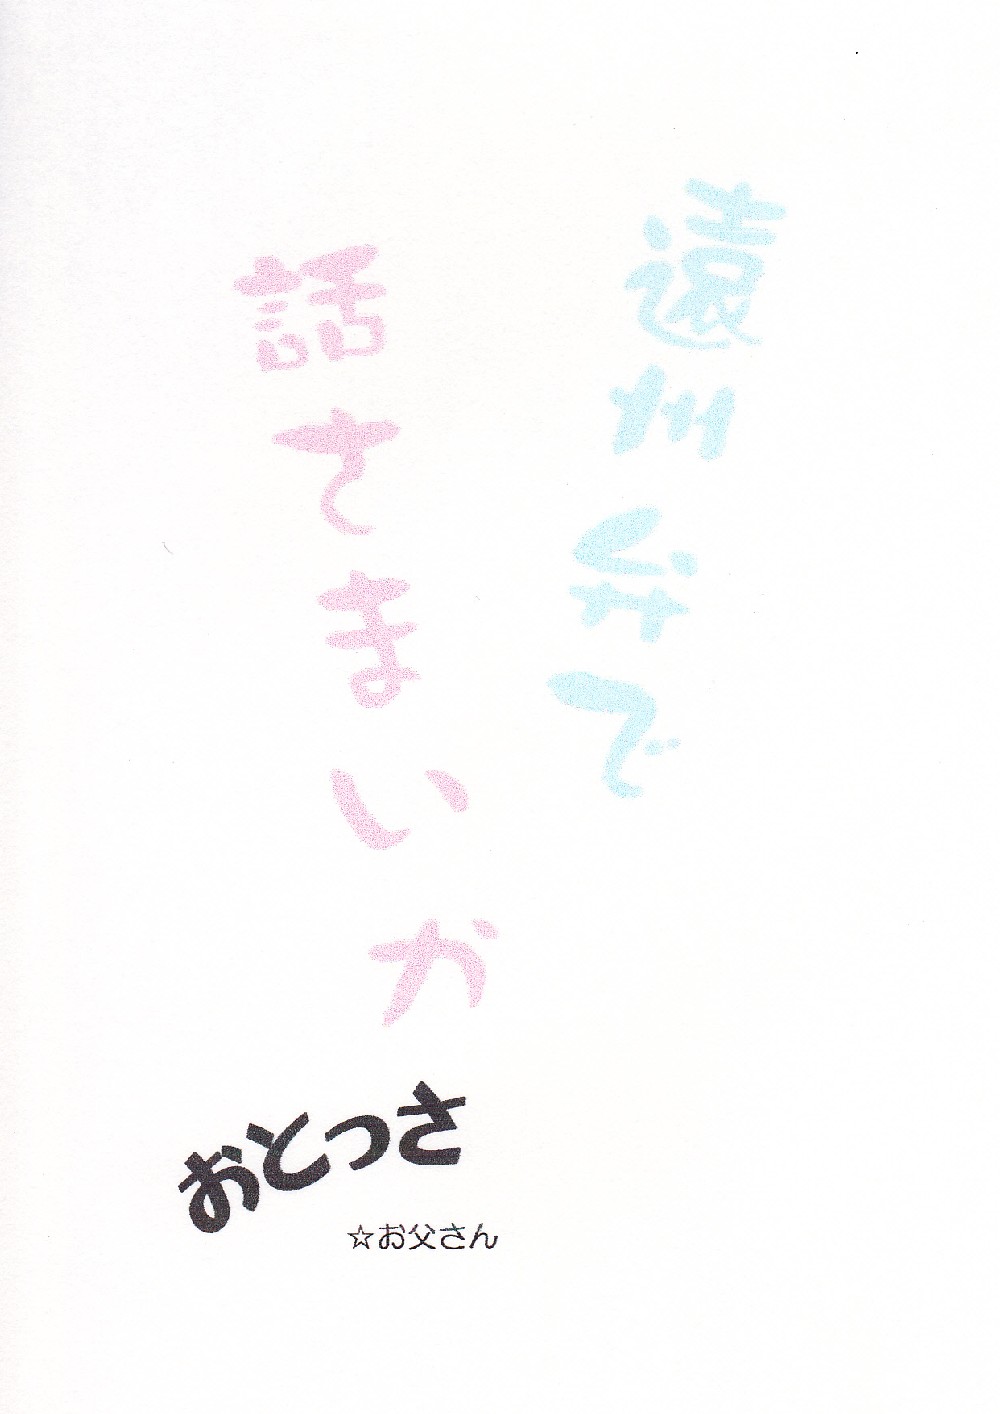 遠州弁で
話さまいか
おとっさ
☆お父さん